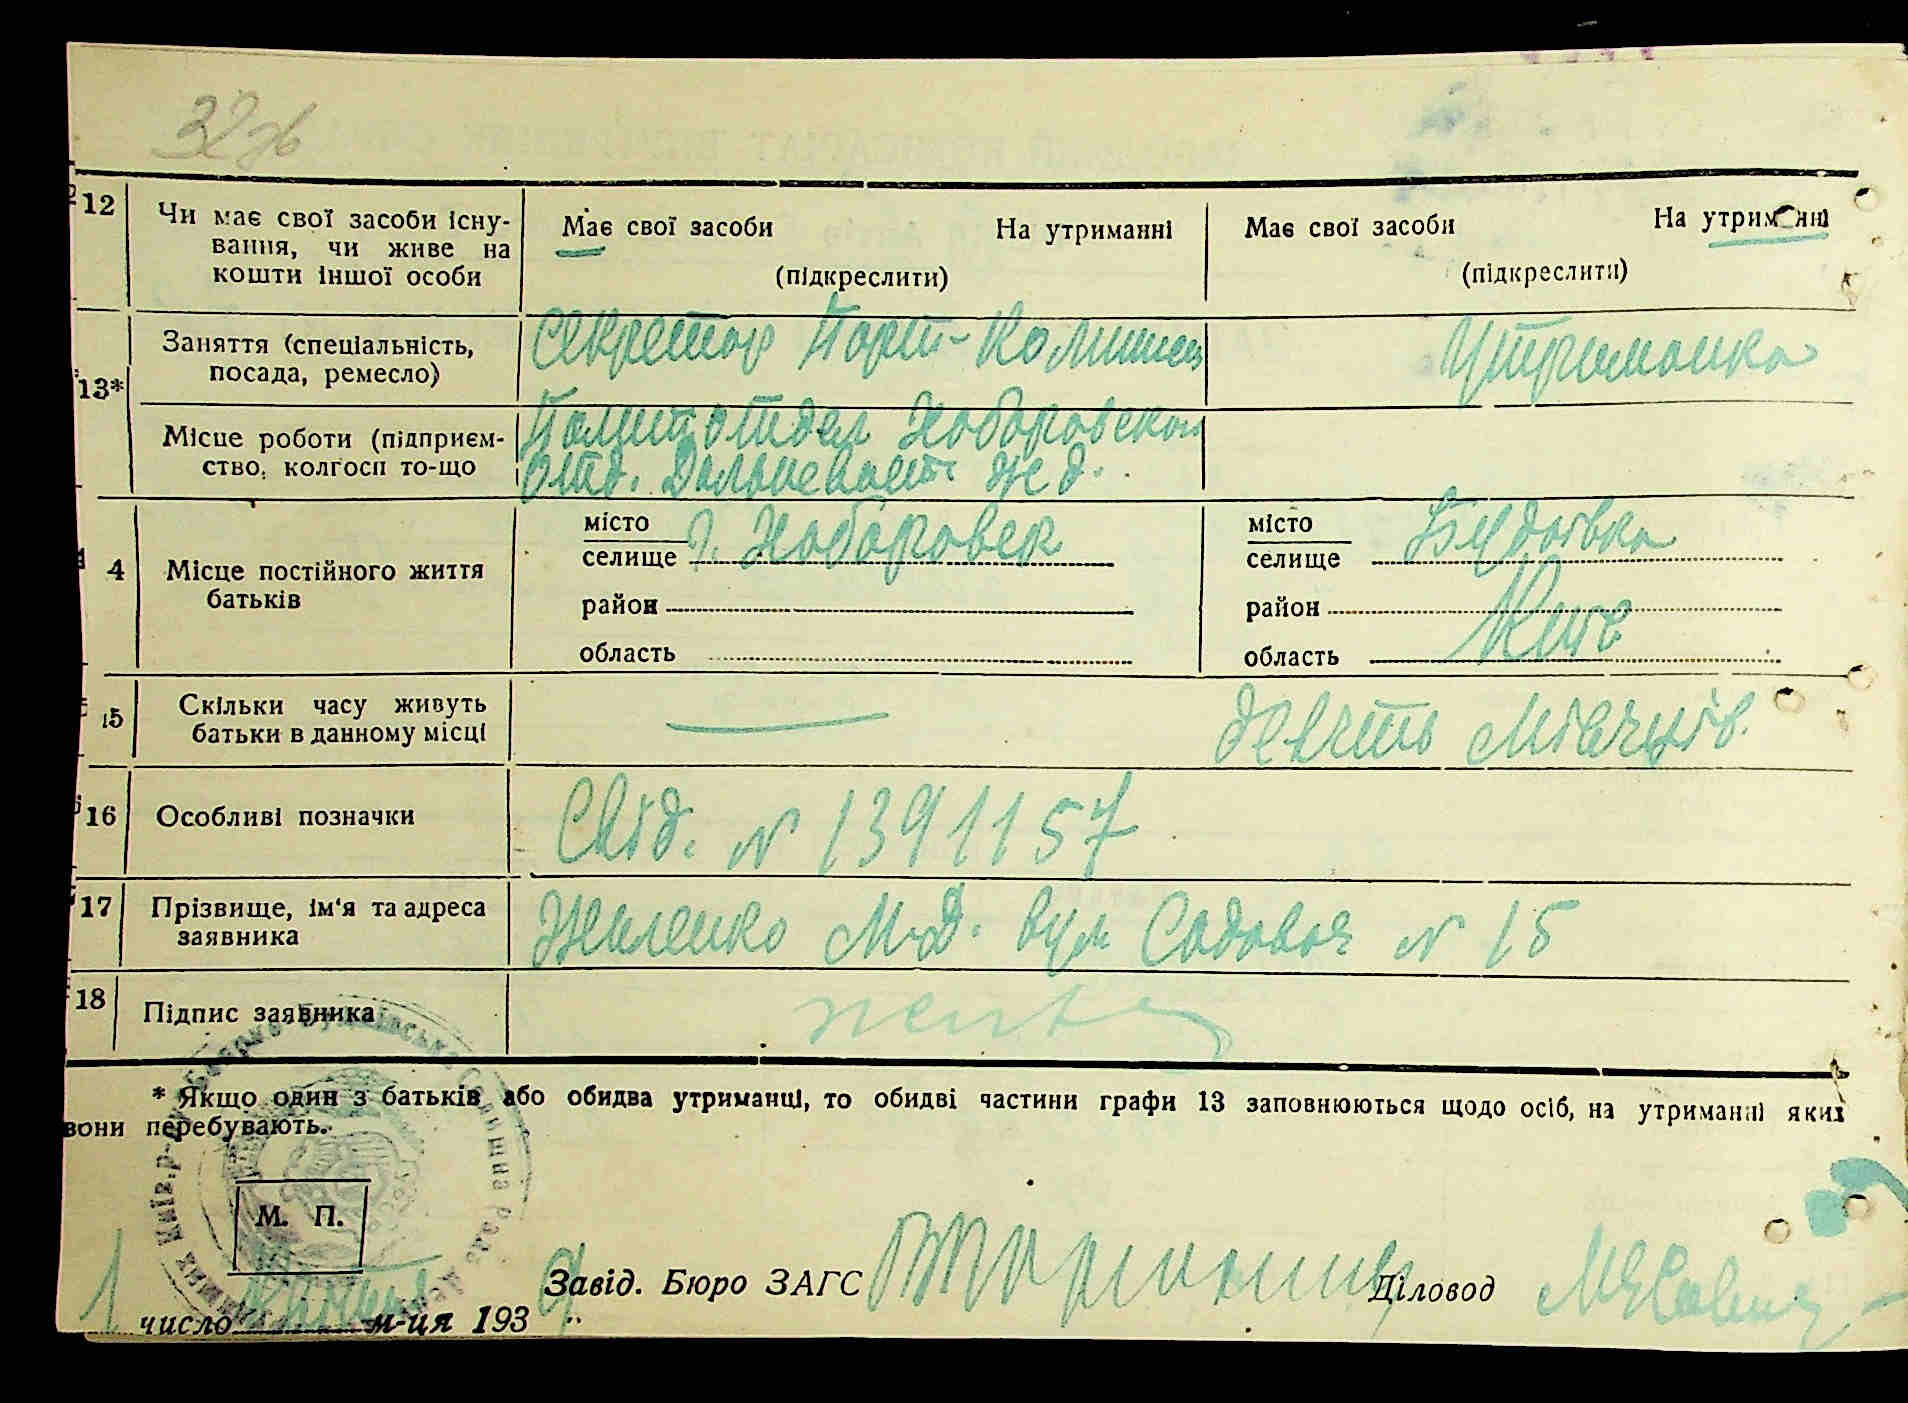 32 зв
12 Чи має свої засоби існу-
вання, чи живе на
кошти іншої особи
Має свої засоби На утриманні
(підкреслити)
Має свої засоби На утриманні
(підкреслити)
13* Заняття (спеціальність,
посада, ремесло)
Секретар Парт-Комишеи
Утриманка
Місце роботи (підприєм-
ство, колгосп то-що
Политотдел Хабаровской
отд. Дальневост ж д.
4 Місце постійного життя
батьків
місто
селище г. Хабаровск
район
область
місто
селище Будаївка
район
область Київ
15 Скільки часу живуть
батьки в данному місці
— девять місяців.
16 Особливі позначки
Свід. N 1391157
17 Прізвище, ім'я та адреса
заявника
Жиленко М.Д. вул Садовая N 15
18 Підпис заявника
* Якщо один з батьків або обидва утриманці, то обидві частини графи 13 заповнюються щодо осіб, на утриманні яких
вони перебувають.
М. П.
1 число м-ця 193 Завід. Бюро ЗАГС Діловод